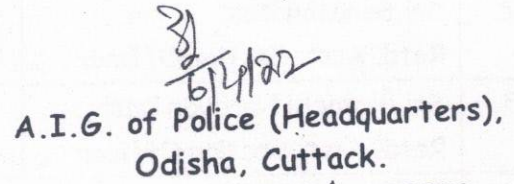 A.I.G. of Police (Headquarters),
Odisha, Cuttack.